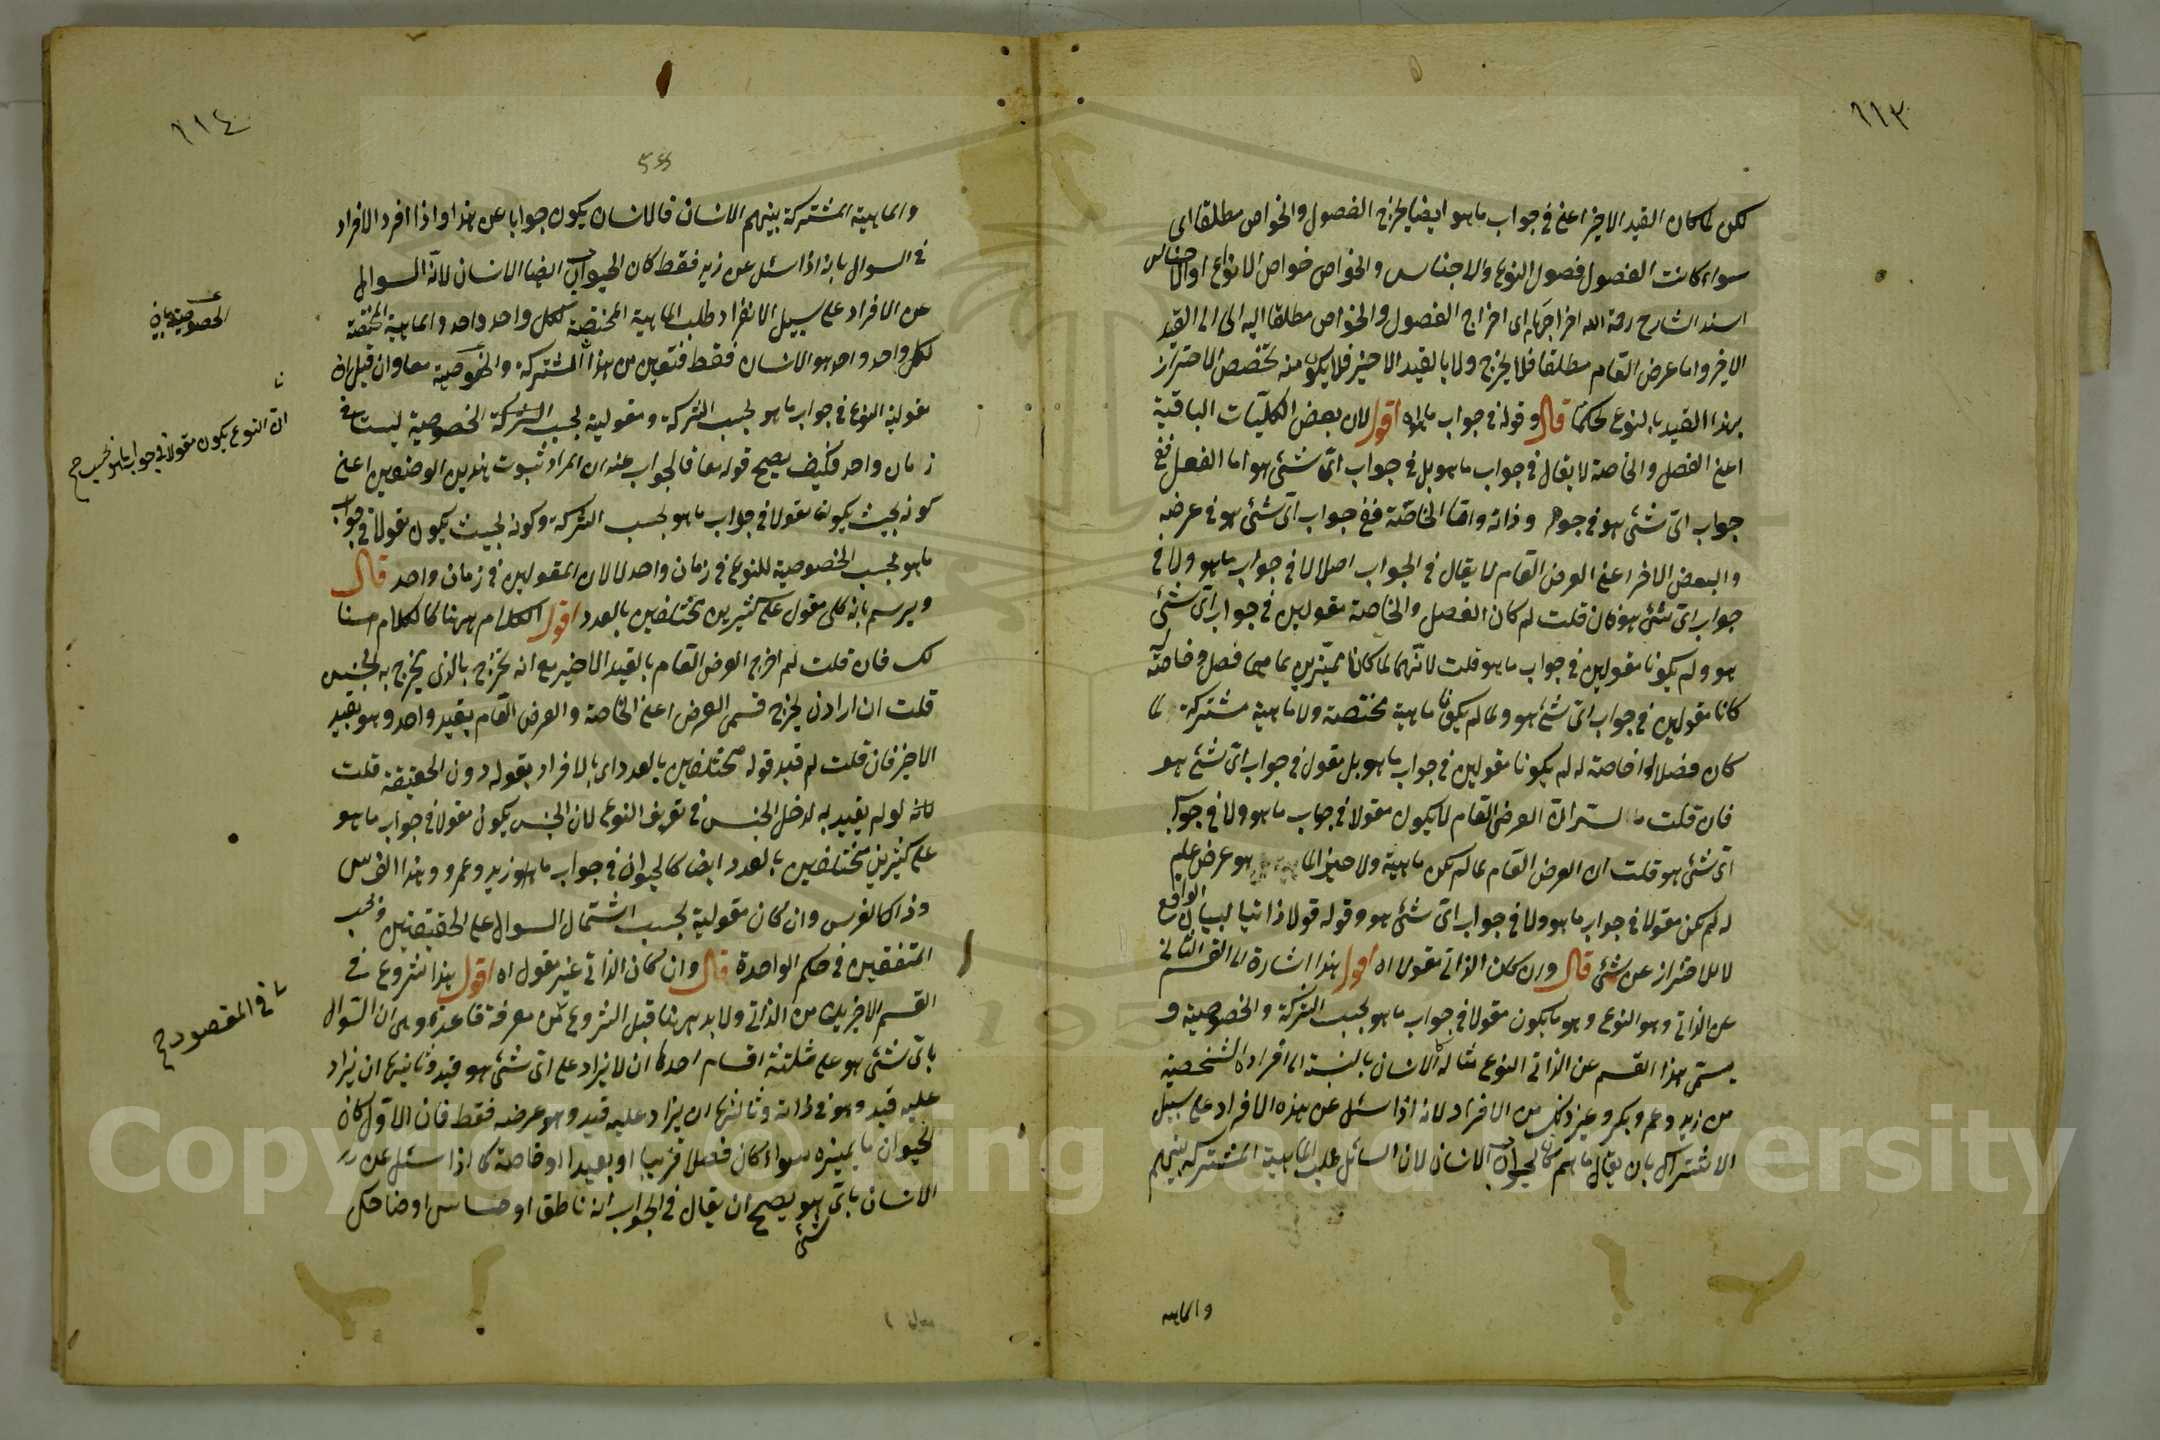 ١١٣
لكن لما كان القيد الاخير اعنى فى جواب ما هو ايضا يخرج الفصول والخواص مطلقا اى
سواء كانت الفصول فصول النوع والاجناس والخواص خواص الانواع او الاجناس
اسند الشارح رحمة الله اخراجها اى اخراج الفصول والخواص مطلقا اليه اى الى القيد
الاخير واما عرض العام مطلقا فلا يخرج ولا بالقيد الاخير فلا يكون منه تخصص الاحتراز
بهذا القيد بالنوع تحكما قال وقوله فى جواب ما هو اه اقول لان بعض الكليات الباقية
اعنى الفصل والخاصة لا يقال فى جواب ما هو بل فى جواب اى شئ هو اما الفصل ففى
جواب اى شئ هو فى جوهره وذاته واما الخاصة ففى جواب اى شئ هو فى عرضه
والبعض الاخر اعنى العرض العام لا يقال فى الجواب اصلا لا فى جواب ما هو ولا فى
جواب اى شئ هو فان قلت لم كان الفصل والخاصة مقولين فى جواب اى شئ
هو ولم يكونا مقولين فى جواب ما هو قلت لانهما لما كانا مميزين لما هما فصل وخاصة
كانا مقولين فى جواب اى شئ هو ولما لم يكونا ماهية مختصة ولا ماهية مشتركة لما
كان فصلا او خاصة له لم يكونا مقولين فى جواب ما هو بل مقول فى جواب اى شئ هو
فان قلت ما السر ان العرض العام لا يكون مقولا فى جواب ما هو ولا فى جواب
اى شئ هو قلت ان العرض العام لما لم يكن ماهية ولا مميز الما هو عرض عام
له لم يكن مقولا فى جواب ما هو ولا فى جواب اى شئ هو وقوله قولا ذاتيا لبيان الواقع
لا للاحتراز عن شئ قال وان كان الذاتى مقولا اه اقول هذا اشارة الى القسم الثانى
عن الذاتى وهو النوع وهو ما يكون مقولا فى جواب ما هو بحسب الشركة والخصوصية و
يسمى هذا القسم عن الذاتى النوع مثاله الانسان بالنسبة الى افراده الشخصية
من زيد وعمرو وبكر وغير ذلك من الافراد لانه اذا سئل عن هذه الافراد على سبيل
الاشتراك بان يقال ما هم كان الجواب الانسان لان السائل طلب الماهية المشتركة بينهم
والماهية
١١٤
والماهية المشتركة بينهم الانسان فالانسان يكون جوابا عن هذا واذا افرد الافراد
فى السوال بانه اذا سئل عن زيد فقط كان الجواب ايضا الانسان لانّ السوال
عن الافراد على سبيل الانفراد طلب الماهية المختصة لكل واحد واحد والماهية المختصة
لكل واحد واحد هو الانسان فقط فتعين من هذا المشتركة والخصوصية معا وان قيل ان
مقولية النوع فى جواب ما هو بحسب الشركة ومقولية بحسب الشركة الخصوصية ليست فى
زمان واحد فكيف يصح قوله معا فالجواب عنه ان المراد ثبوت هذين الوضعين اعنى
كونه بحيث يكون مقولا فى جواب ما هو بحسب الشركة وكونه بحيث يكون مقولا فى جواب
ما هو بحسب الخصوصية للنوع فى زمان واحد لا لان المقولين فى زمان واحد قال
ويرسم بانه كلى مقول على كثيرين مختلفين بالعدد اقول الكلام ههنا كالكلام هنا
لك فان قلت لم اخرج العرض العام بالقيد الاخير مع انه يخرج بالذى يخرج به الجنس
قلت ان اراد ان يخرج قسمى العرض اعنى الخاصة والعرض العام بقيد واحد وهو بقيد
الاخير فان قلت لم قيد قوله مختلفين بالعدد اى بالافراد بقوله دون الحقيقة قلت
لانه لو لم يقيد به لدخل الجنس فى تعريف النوع لان الجنس يكون مقولا فى جواب ما هو
على كثيرين مختلفين بالعدد ايضا كالحيوان فى جواب ما هو زيد وعمرو وهذا الفرس
وذاك الفرس وان كان مقولية بحسب اشتمال السوال على الحقيقتين وبحسب
المتفقين فى حكم الواحدة قال وان كان الذاتى غير مقول اه اقول هذا شروع فى
القسم الاخير من الذاتى ولا بد ههنا قبل الشروع من معرفة قاعدة وهى ان السوال
باى شئ هو على ثلثة اقسام احدها ان لا يزاد على اى شئ هو قيد وثانيها ان يزاد
عليه قيد وهو فى ذاته وثالثها ان يزاد عليه قيد وهو عرضه فقط فان الاول كان
الجواب ما يميزه سواء كان فصلا قريبا او بعيدا او خاصة كما اذا سئل عن
الانسان باى شئ هو يصح ان يقال فى الجواب انه ناطق او حساس او ضاحك
ان النوع يكون مقولا فى جواب ما هو بحسب
فى المقصود